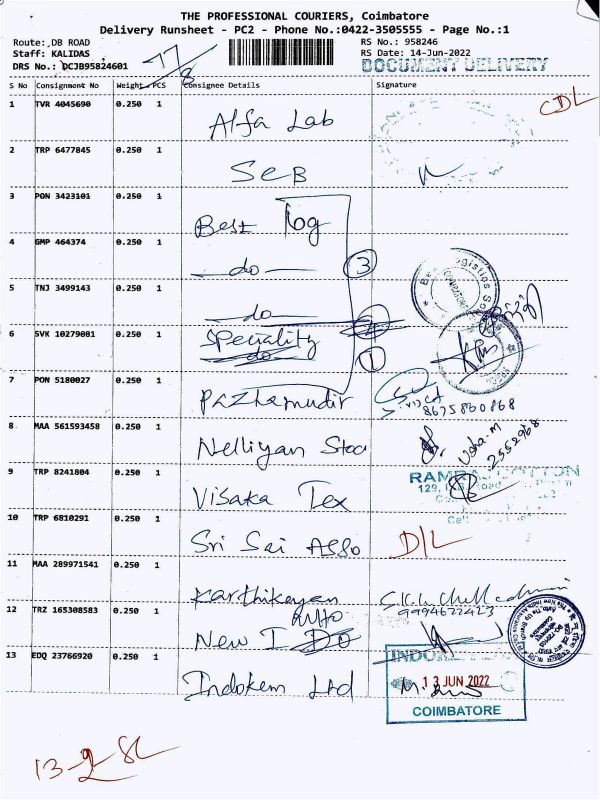 THE PROFESSIONAL COURIERS, Coimbatore
Delivery Runsheet - PC2 - Phone No.:0422-3505555 - Page No.:1
Route: DB ROAD
Staff: KALIDAS
DRS No.: DCJB95824601
17/8
RS No.: 958246
RS Date: 14-Jun-2022
DOCUMENT DELIVERY
S No Consignment No Weight PCS Consignee Details Signature
1 TVR 4045690 0.250 1 Alfa Lab CDL
2 TRP 6477845 0.250 1 SCB
3 PON 3423101 0.250 1 Best log
4 GMP 464374 0.250 1 do 3
5 TNJ 3499143 0.250 1 do
6 SVK 10279081 0.250 1 Speciality do 1
7 PON 5180027 0.250 1 Pazhamudir
8675860868
8 MAA 561593458 0.250 1 Nelliyan Usha.M
2552968
9 TRP 8241804 0.250 1 Visaka Tex
10 TRP 6810291 0.250 1 Sri Sai Asso D/L
11 MAA 289971541 0.250 1 Karthikeyan
9994622423
12 TRZ 165308583 0.250 1 New I DO
13 EDQ 23766920 0.250 1 Indokem Ltd
13 JUN 2022
COIMBATORE